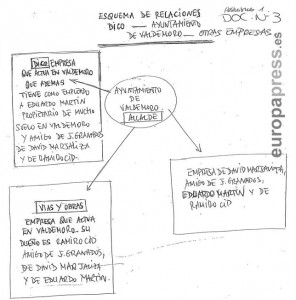 ESQUEMA DE RELACIONES
DICO — AYUNTAMIENTO
DE VALDEMORO — OTRAS EMPRESAS
DOC. Nº 3
DICO EMPRESA
QUE ACTUA EN VALDEMORO
QUE ADEMAS
TIENE COMO EMPLEADO
A EDUARDO MARTIN
PROPIETARIO DE MUCHO
SUELO EN VALDEMORO
Y AMIGO DE J. GRANADOS
DE DAVID MARJALIZA Y
DE RAMIRO CID
AYUNTAMIENTO
DE
VALDEMORO
ALCALDE
EMPRESA DE DAVID MARJALIZA,
AMIGO DE J. GRANADOS,
EDUARDO MARTIN Y DE
RAMIRO CID
VIAS Y OBRAS
EMPRESA QUE ACTUA
EN VALDEMORO. SU
DUEÑO ES RAMIRO CID
AMIGO DE J. GRANADOS,
DE DAVID MARJALIZA
Y DE EDUARDO MARTIN.
europapress.es